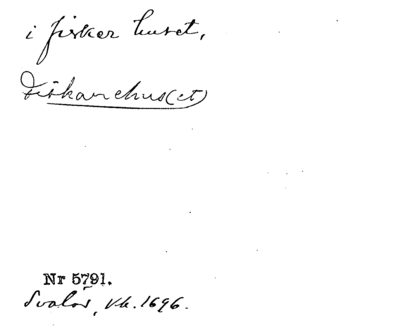 i fisker huset,
Fiskarehus(et)
Nr 5791.
Svalöv, v.h. 1696.